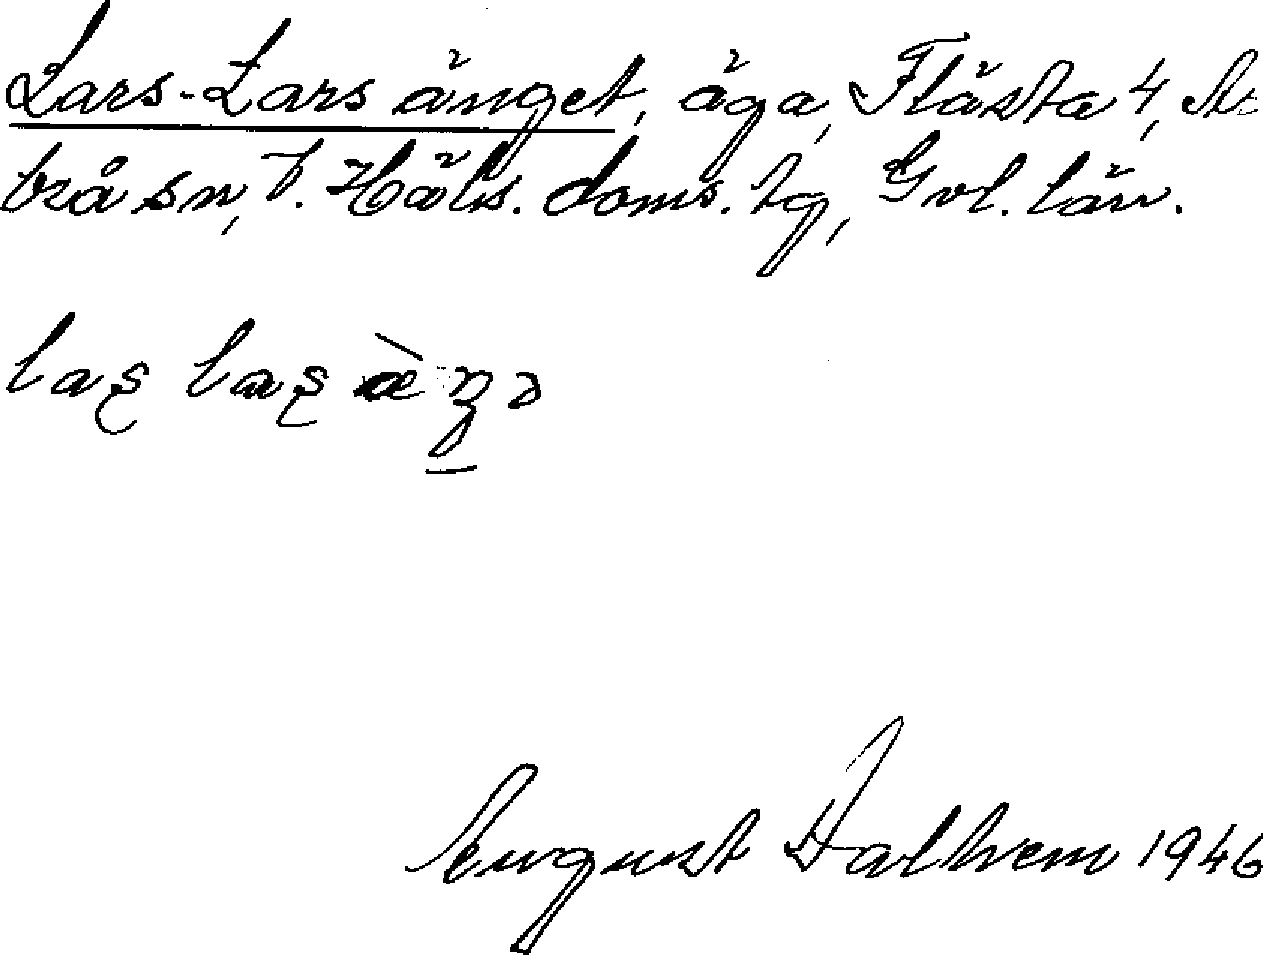 Lars-Larsänget, äga, Flästa 4, Ar-
brå sn, V. Häls. doms. tg, Gvl. län.
laş laşæ̀ŋə
August Dalhem 1946